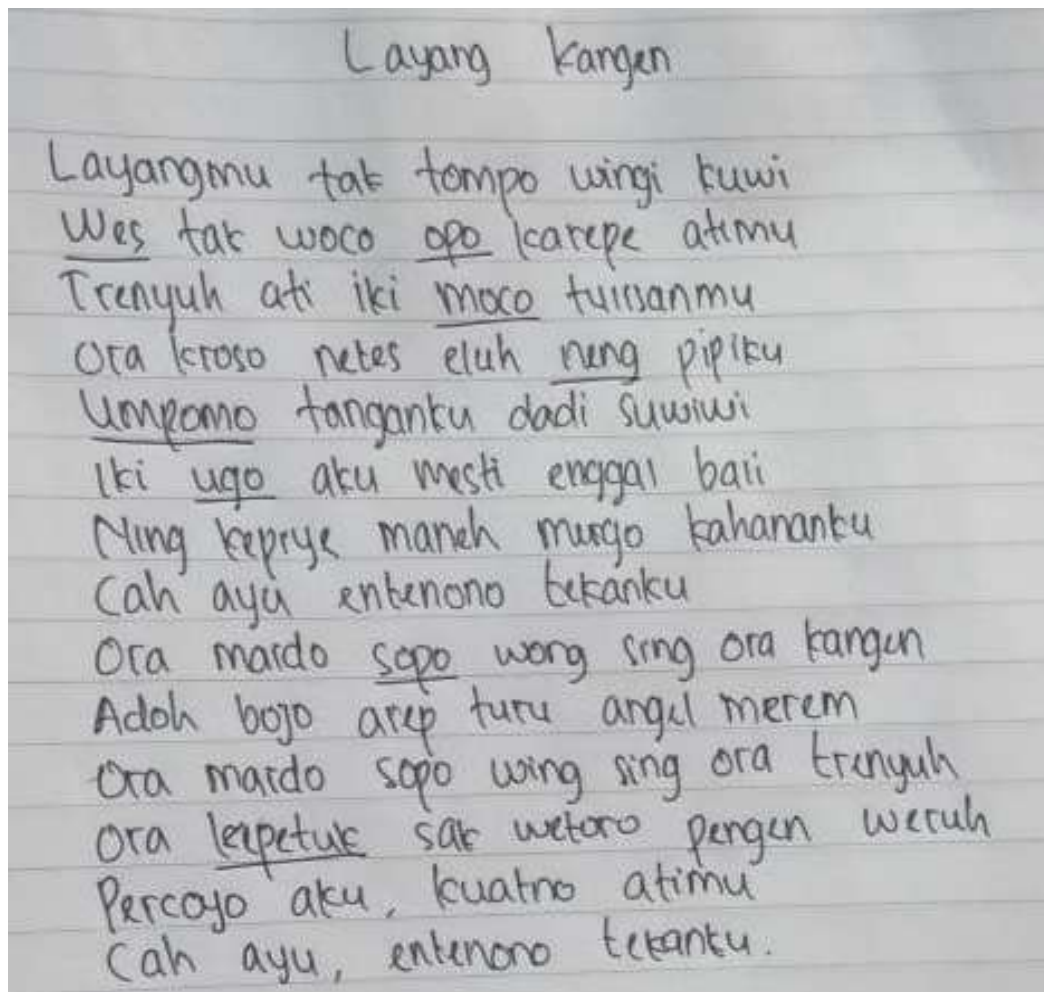 Layang Kangen
Layangmu tak tompo wingi kuwi
Wes tak woco opo karepe atimu
Trenyuh ati iki moco tulisanmu
Ora kroso netes eluh neng pipiku
Umpomo tanganku dadi suwiwi
Iki ugo aku mesti enggal bali
Ning kepriye maneh mergo kahananku
Cah ayu entenono tekanku
Ora maido sopo wong sing ora kangen
Adoh bojo arep turu angel merem
Ora maido sopo wing sing ora trenyuh
Ora kepetuk sak wetoro pengen weruh
Percoyo aku, kuatno atimu
Cah ayu, entenono tekanku.